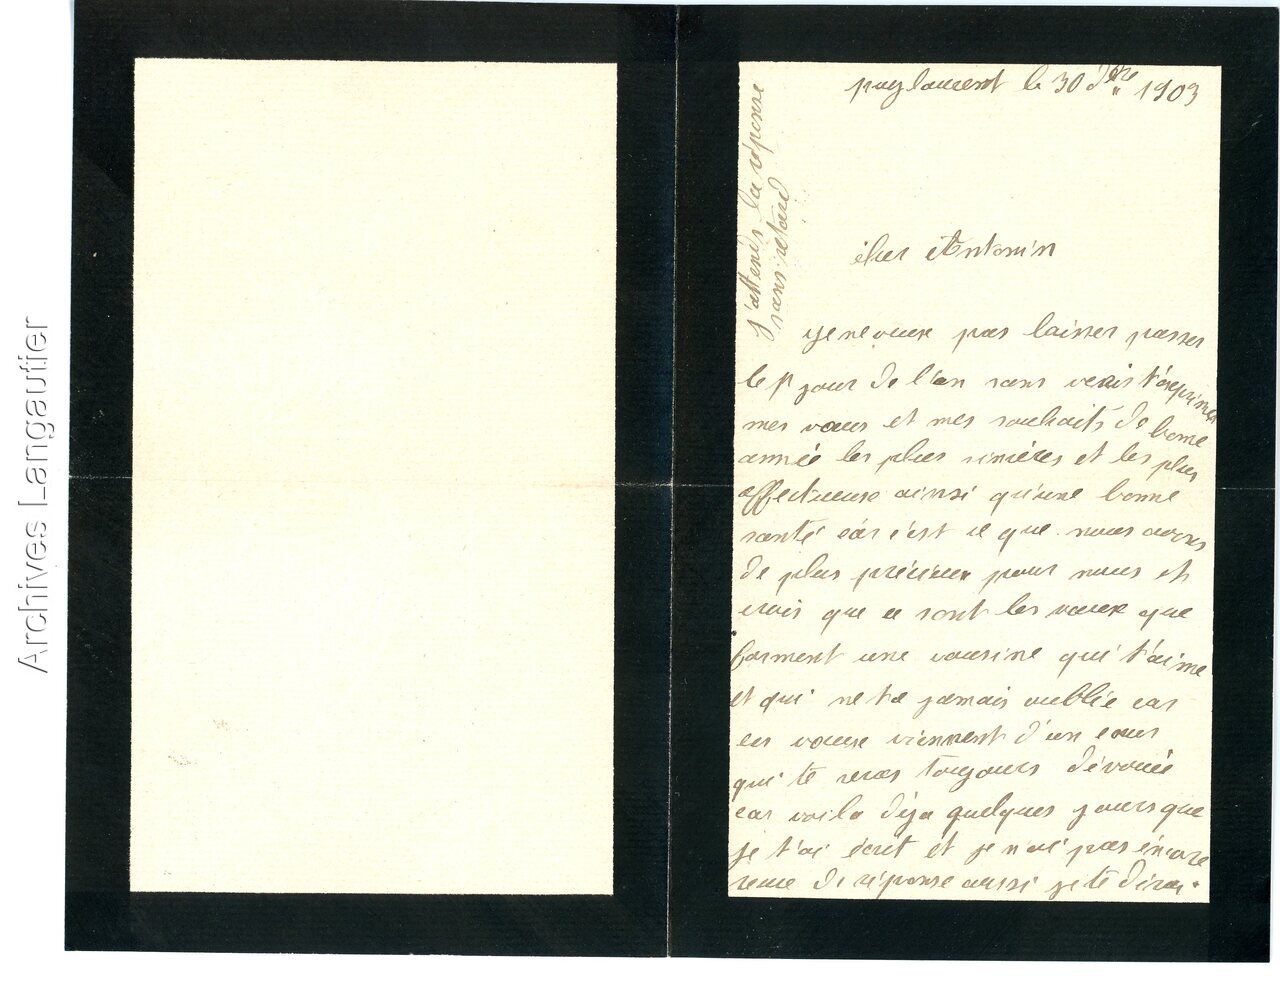 Archives Langautier
puylaurent le 30 Xbre 1903
j'attends la réponse
sans retard
cher Antonin
je ne veux pas laisser passer
le 1er jour de l'an sans venir t'exprimer
mes vœus et mes souhaits de bonne
année les plus sincères et les plus
affectueuse ainsi qu'une bonne
santé car c'est ce que nous avons
de plus précieux pour nous et
crois que ce sont les vœux que
forment une cousine qui t'aime
et qui ne ta jamais oubliée car
ces vœux viennent d'un cœur
qui te seras toujours dévouée
car voila déja quelques jours que
je t'ai écrit et je n'ai pas encore
recue de réponse aussi je te dirai